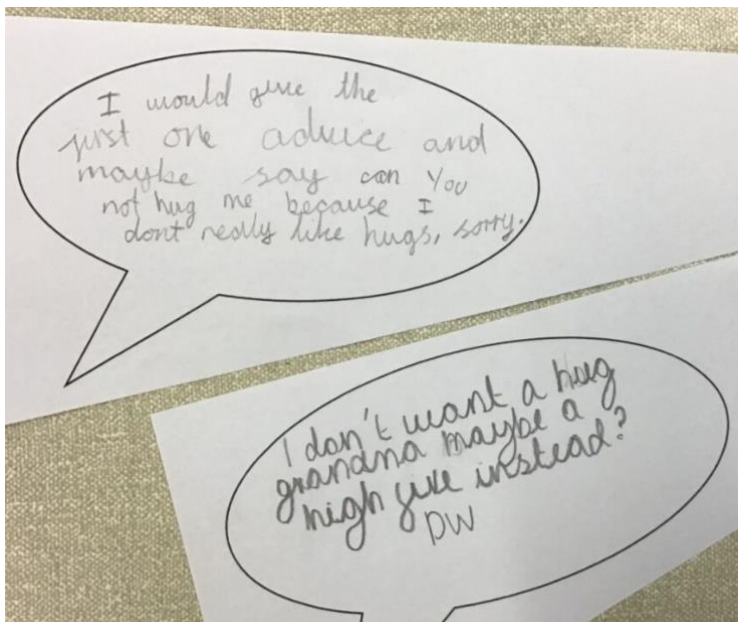 I would give the
first one advice and
maybe say can you
not hug me because I
dont really like hugs, sorry.
I don't want a hug
grandna maybe a
high five instead?
DW